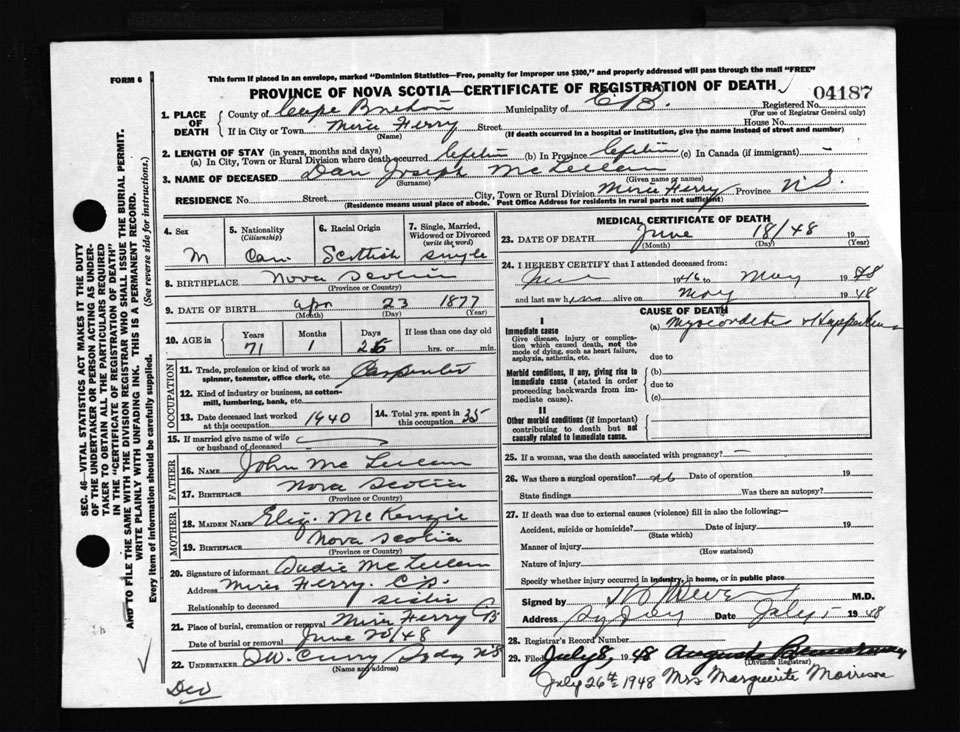 This form if placed in an envelope, marked "Dominion Statistics—Free, penalty for improper use $300," and properly addressed will pass through the mail "FREE"
FORM 6
PROVINCE OF NOVA SCOTIA—CERTIFICATE OF REGISTRATION OF DEATH
04187
1. PLACE OF DEATH
County of Cape Breton Municipality of C.B. Registered No.
(For use of Registrar General only)
If in City or Town Mira Ferry Street House No.
(Name) (If death occurred in a hospital or institution, give the name instead of street and number)
2. LENGTH OF STAY (in years, months and days)
(a) In City, Town or Rural Division where death occurred Lifetime (b) In Province Lifetime (c) In Canada (if immigrant) -
3. NAME OF DECEASED Dan Joseph McLellan
(Surname) (Given name or names)
RESIDENCE No. Street City, Town or Rural Division Mira Ferry Province N.S.
(Residence means usual place of abode. Post Office Address for residents in rural parts not sufficient)
4. Sex
M
5. Nationality
(Citizenship)
Can
6. Racial Origin
Scottish
7. Single, Married, Widowed or Divorced
(write the word)
single
8. BIRTHPLACE Nova Scotia
(Province or Country)
9. DATE OF BIRTH Apr 23 1877
(Month) (Day) (Year)
10. AGE in
Years Months Days If less than one day old
71 1 25 hrs. or min.
OCCUPATION
11. Trade, profession or kind of work as spinner, teamster, office clerk, etc. Carpenter
12. Kind of industry or business, as cotton-mill, lumbering, bank, etc.
13. Date deceased last worked at this occupation 1940
14. Total yrs. spent in this occupation 35
15. If married give name of wife or husband of deceased
FATHER
16. NAME John McLellan
17. BIRTHPLACE Nova Scotia
(Province or Country)
MOTHER
18. MAIDEN NAME Eliz. McKenzie
19. BIRTHPLACE Nova Scotia
(Province or Country)
20. Signature of informant Sadie McLellan
Address Mira Ferry. C.B.
Relationship to deceased sister
21. Place of burial, cremation or removal Mira Ferry CB
Date of burial or removal June 20/48
22. UNDERTAKER Curry Sydney NS
(Name and address)
MEDICAL CERTIFICATE OF DEATH
23. DATE OF DEATH June 18/48
(Month) (Day) (Year)
24. I HEREBY CERTIFY that I attended deceased from:
1946 to May 1948
and last saw him alive on May 1948
CAUSE OF DEATH
I
Immediate cause
Give disease, injury or complication which caused death, not the mode of dying, such as heart failure, asphyxia, asthenia, etc.
(a) Myocarditis
due to
Morbid conditions, if any, giving rise to immediate cause (stated in order proceeding backwards from immediate cause).
(b)
due to
(c)
II
Other morbid conditions (if important) contributing to death but not causally related to immediate cause.
25. If a woman, was the death associated with pregnancy? —
26. Was there a surgical operation? no Date of operation 19
State findings Was there an autopsy?
27. If death was due to external causes (violence) fill in also the following:—
Accident, suicide or homicide? Date of injury 19
(State which)
Manner of injury
(How sustained)
Nature of injury
Specify whether injury occurred in industry, in home, or in public place
Signed by M.D.
Address Sydney Date July 1948
28. Registrar's Record Number
29. Filed July 8, 1948
(Division Registrar)
July 26th 1948 Mrs Marguerite Morrison
SEC. 46—VITAL STATISTICS ACT MAKES IT THE DUTY
OF THE UNDERTAKER OR PERSON ACTING AS UNDER-
TAKER TO OBTAIN ALL THE PARTICULARS REQUIRED
IN THE "CERTIFICATE OF REGISTRATION OF DEATH"
AND TO FILE THE SAME WITH THE DIVISION REGISTRAR WHO SHALL ISSUE THE BURIAL PERMIT.
WRITE PLAINLY WITH UNFADING INK. THIS IS A PERMANENT RECORD.
Every item of information should be carefully supplied. (See reverse side for instructions.)